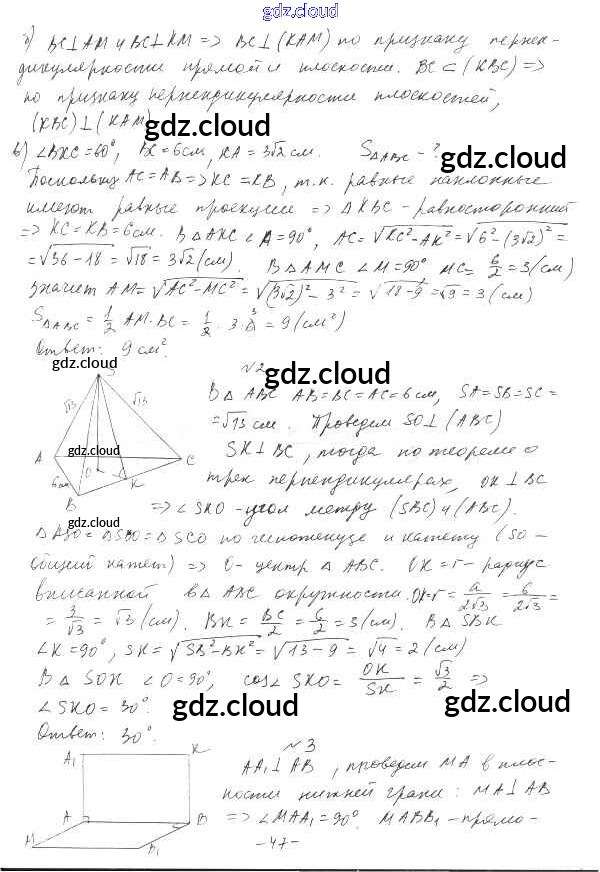 gdz.cloud
б) BC⊥AM и BC⊥KM => BC⊥(KAM) по признаку перпен-
дикулярности прямой и плоскости. BC⊂(KBC) =>
по признаку перпендикулярности плоскостей,
(KBC)⊥(KAM)
gdz.cloud
gdz.cloud
в) ∠BKC=60°, BK=6см, KA=3√2 см. S△ABC - ?
Поскольку AC=AB => KC=KB, т.к. равные наклонные
имеют равные проекции => △KBC - равносторонний
=> KC=KB=6см. В △AKC ∠A=90°, AC=√KC²-AK²=√6²-(3√2)²=
=√36-18=√18=3√2(см). В △AMC ∠M=90°, MC=6/2=3(см)
значит AM=√AC²-MC²=√(3√2)²-3²=√18-9=√9=3(см)
S△ABC=1/2 AM·BC=1/2·3·6=9(см²)
gdz.cloud
gdz.cloud
Ответ: 9см².
gdz.cloud
№2
gdz.cloud
S
√13
√13
A
C
O
K
B
6см
gdz.cloud
gdz.cloud
В △ABC AB=BC=AC=6см, SA=SB=SC=
=√13 см. Проведем SO⊥(ABC)
SK⊥BC, тогда по теореме о
трех перпендикулярах, OK⊥BC
=> ∠SKO - угол между (SBC) и (ABC).
△ASO=△SBO=△SCO по гипотенузе и катету (SO-
общий катет) => O - центр △ABC. OK=r - радиус
вписанной в △ABC окружности. OK=r=a/2√3=6/2√3=
=3/√3=√3(см). BK=BC/2=6/2=3(см). В △SBK
∠K=90°, SK=√SB²-BK²=√13-9=√4=2(см)
В △SOK ∠O=90°, cos∠SKO=OK/SK=√3/2 =>
∠SKO=30°.
gdz.cloud
gdz.cloud
gdz.cloud
Ответ: 30°.
№3
A₁
K
A
B
M
B₁
AA₁⊥AB, проведем MA в плос-
кости нижней грани: MA⊥AB
=> ∠MAA₁=90°. MABB₁ - прямо-
-47-